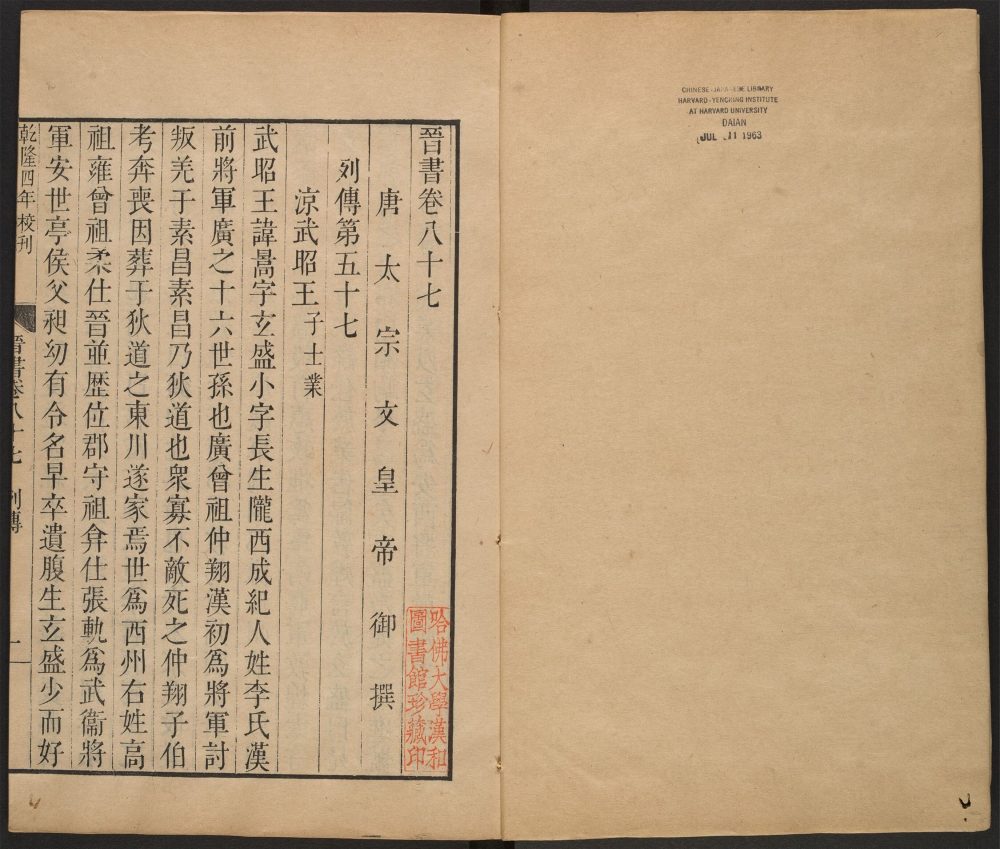 晉書卷八十七
唐太宗文皇帝御撰
列傳第五十七
涼武昭王子士業
武昭王諱暠字玄盛小字長生隴西成紀人姓李氏漢
前將軍廣之十六世孫也廣曾祖仲翔漢初爲將軍討
叛羌于素昌素昌乃狄道也衆寡不敵死之仲翔子伯
考奔喪因葬于狄道之東川遂家焉世爲西州右姓高
祖雍曾祖柔仕晉並歷位郡守祖弇仕張軌爲武衞將
軍安世亭侯父昶幼有令名早卒遺腹生玄盛少而好
乾隆四年校刊
晉書卷八十七 列傳
一
哈佛大學漢和
圖書館珍藏印
CHINESE-JAPANESE LIBRARY
HARVARD-YENCHING INSTITUTE
AT HARVARD UNIVERSITY
DAIAN
JUL 11 1963